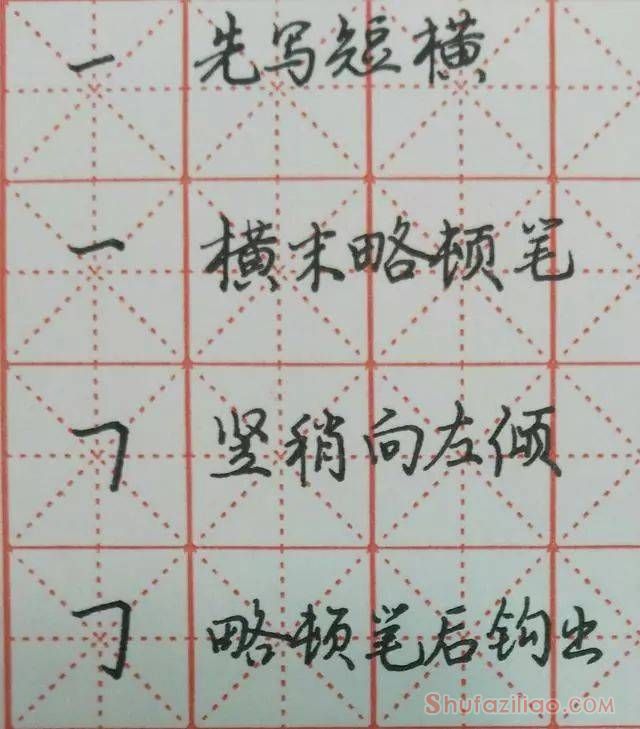 ㇐ 先写短横
㇐ 横末略顿笔
㇕ 竖稍向左倾
㇆ 略顿笔后钩出
Shufaziliao.com